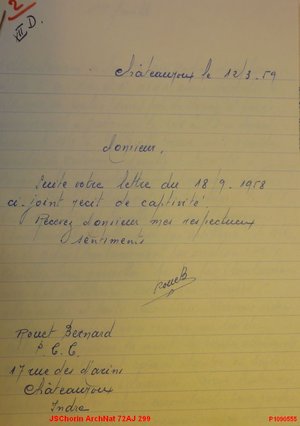 2
VII D.
Châteauroux le 12/3-59
Monsieur,
Suite votre lettre du 18/9-1958
ci-joint récit de captivité
Recevez Monsieur mes respectueux
sentiments
Rouet
Rouet Bernard
P.C.C.
17 rue des
Châteauroux
Indre
JSChorin ArchNat 72AJ 299
P1090555